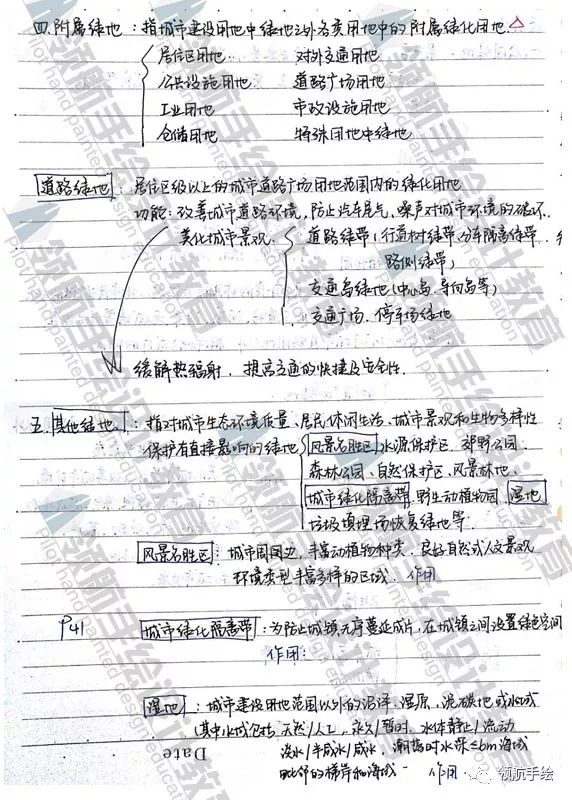 四.附属绿地：指城市建设用地中绿地之外各类用地中的附属绿化用地.
居住区用地 对外交通用地
公共设施用地 道路广场用地
工业用地 市政设施用地
仓储用地 特殊用地中绿地
道路绿地：居住区级以上的城市道路广场用地范围内的绿化用地
功能：改善城市道路环境,防止汽车尾气、噪声对城市环境的破坏.
美化城市景观. 道路绿带(行道树绿带.分车隔离绿带
路侧绿带)
交通岛绿地(中心岛.导向岛等)
交通广场.停车场绿地
缓解热辐射.提高交通的快捷及安全性.
五.其他绿地：指对城市生态环境质量、居民休闲生活、城市景观和生物多样性
保护有直接影响的绿地 风景名胜区 水源保护区.郊野公园.
森林公园、自然保护区、风景林地、
城市绿化隔离带 野生动植物园 湿地
垃圾填埋场恢复绿地等.
风景名胜区：城市周围边,丰富动植物种类.良好自然或人文景观
环境类型丰富多样的区域. 作用
P41 城市绿化隔离带：为防止城镇无序蔓延成片,在城镇之间设置绿色空间
作用：
湿地：城市建设用地范围以外的沼泽.湿原.泥碳地或水域
(其中水域包括 天然/人工,永久/暂时,水体静止/流动
淡水/半咸水/咸水,潮指时水深≤6m海域
毗邻的梯岸和海域 作用
Date
领航手绘
领航手绘设计教育
Pilot hand painted design education